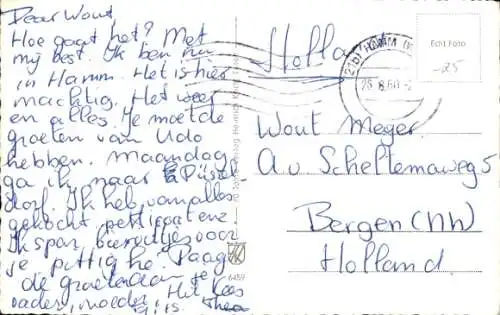 Dear Wout,
Hoe gaat het? Met
mij best. Ik ben nu
in Hamm. Het is hier
machtig. Het weer
en alles. Je moet de
groeten van Udo
hebben. Maandag
ga ik naar Düssel-
dorf. Ik heb van alles
gekocht petticoat enz
Ik spaar bierviltjes voor
je puttig hè. Daag
de groeten aan je
vader, moeder, Kees
Holland
HAMM
26.8.60
Echt Foto
-25
Wout Meyer
A v Scheltemaweg 5
Bergen (NH)
Holland.
6459